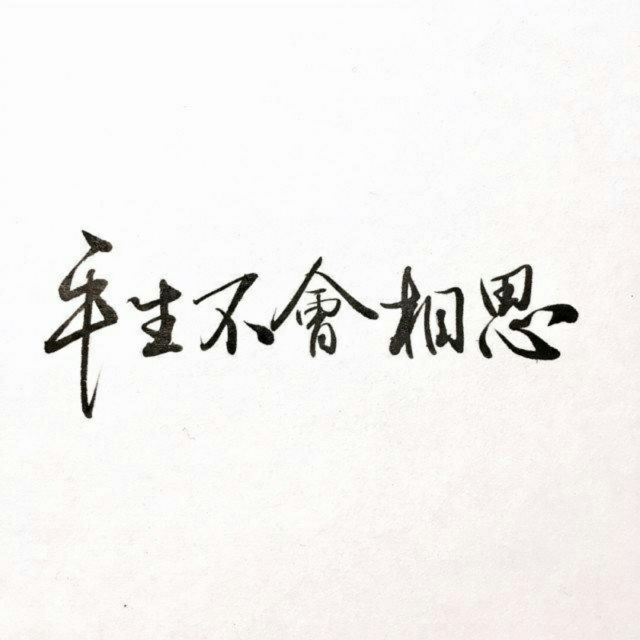 平生不會相思